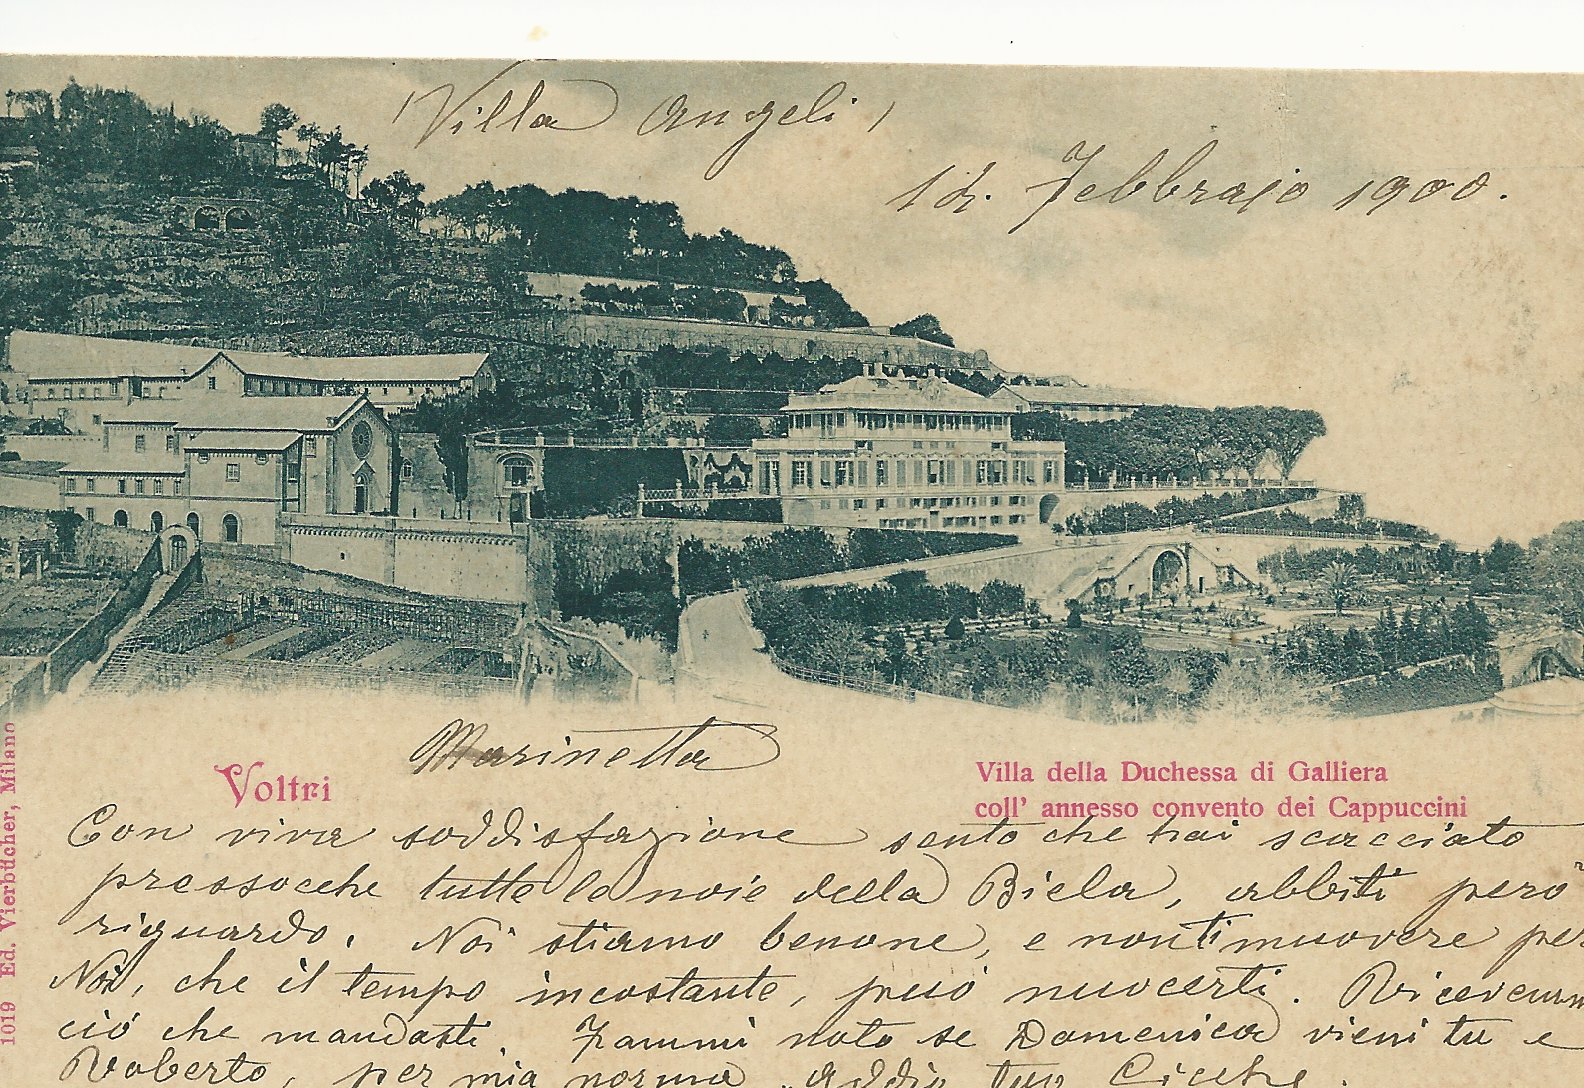 (Villa Angeli)
12. Febbraio 1900.
Marinetta
Voltri
Villa della Duchessa di Galliera
coll' annesso convento dei Cappuccini
Con viva soddisfazione sento che hai scacciato
pressocche tutte le noie della Biela, abbiti però
riguardo. Noi stiamo benone, e non ti muovere per
Noi, che il tempo incostante, può nuocerti.
ciò che mandasti. Fammi noto se Domenica vieni tu e
Roberto, per mia norma. Addio tuo
1019 Ed. Vierbücher, Milano